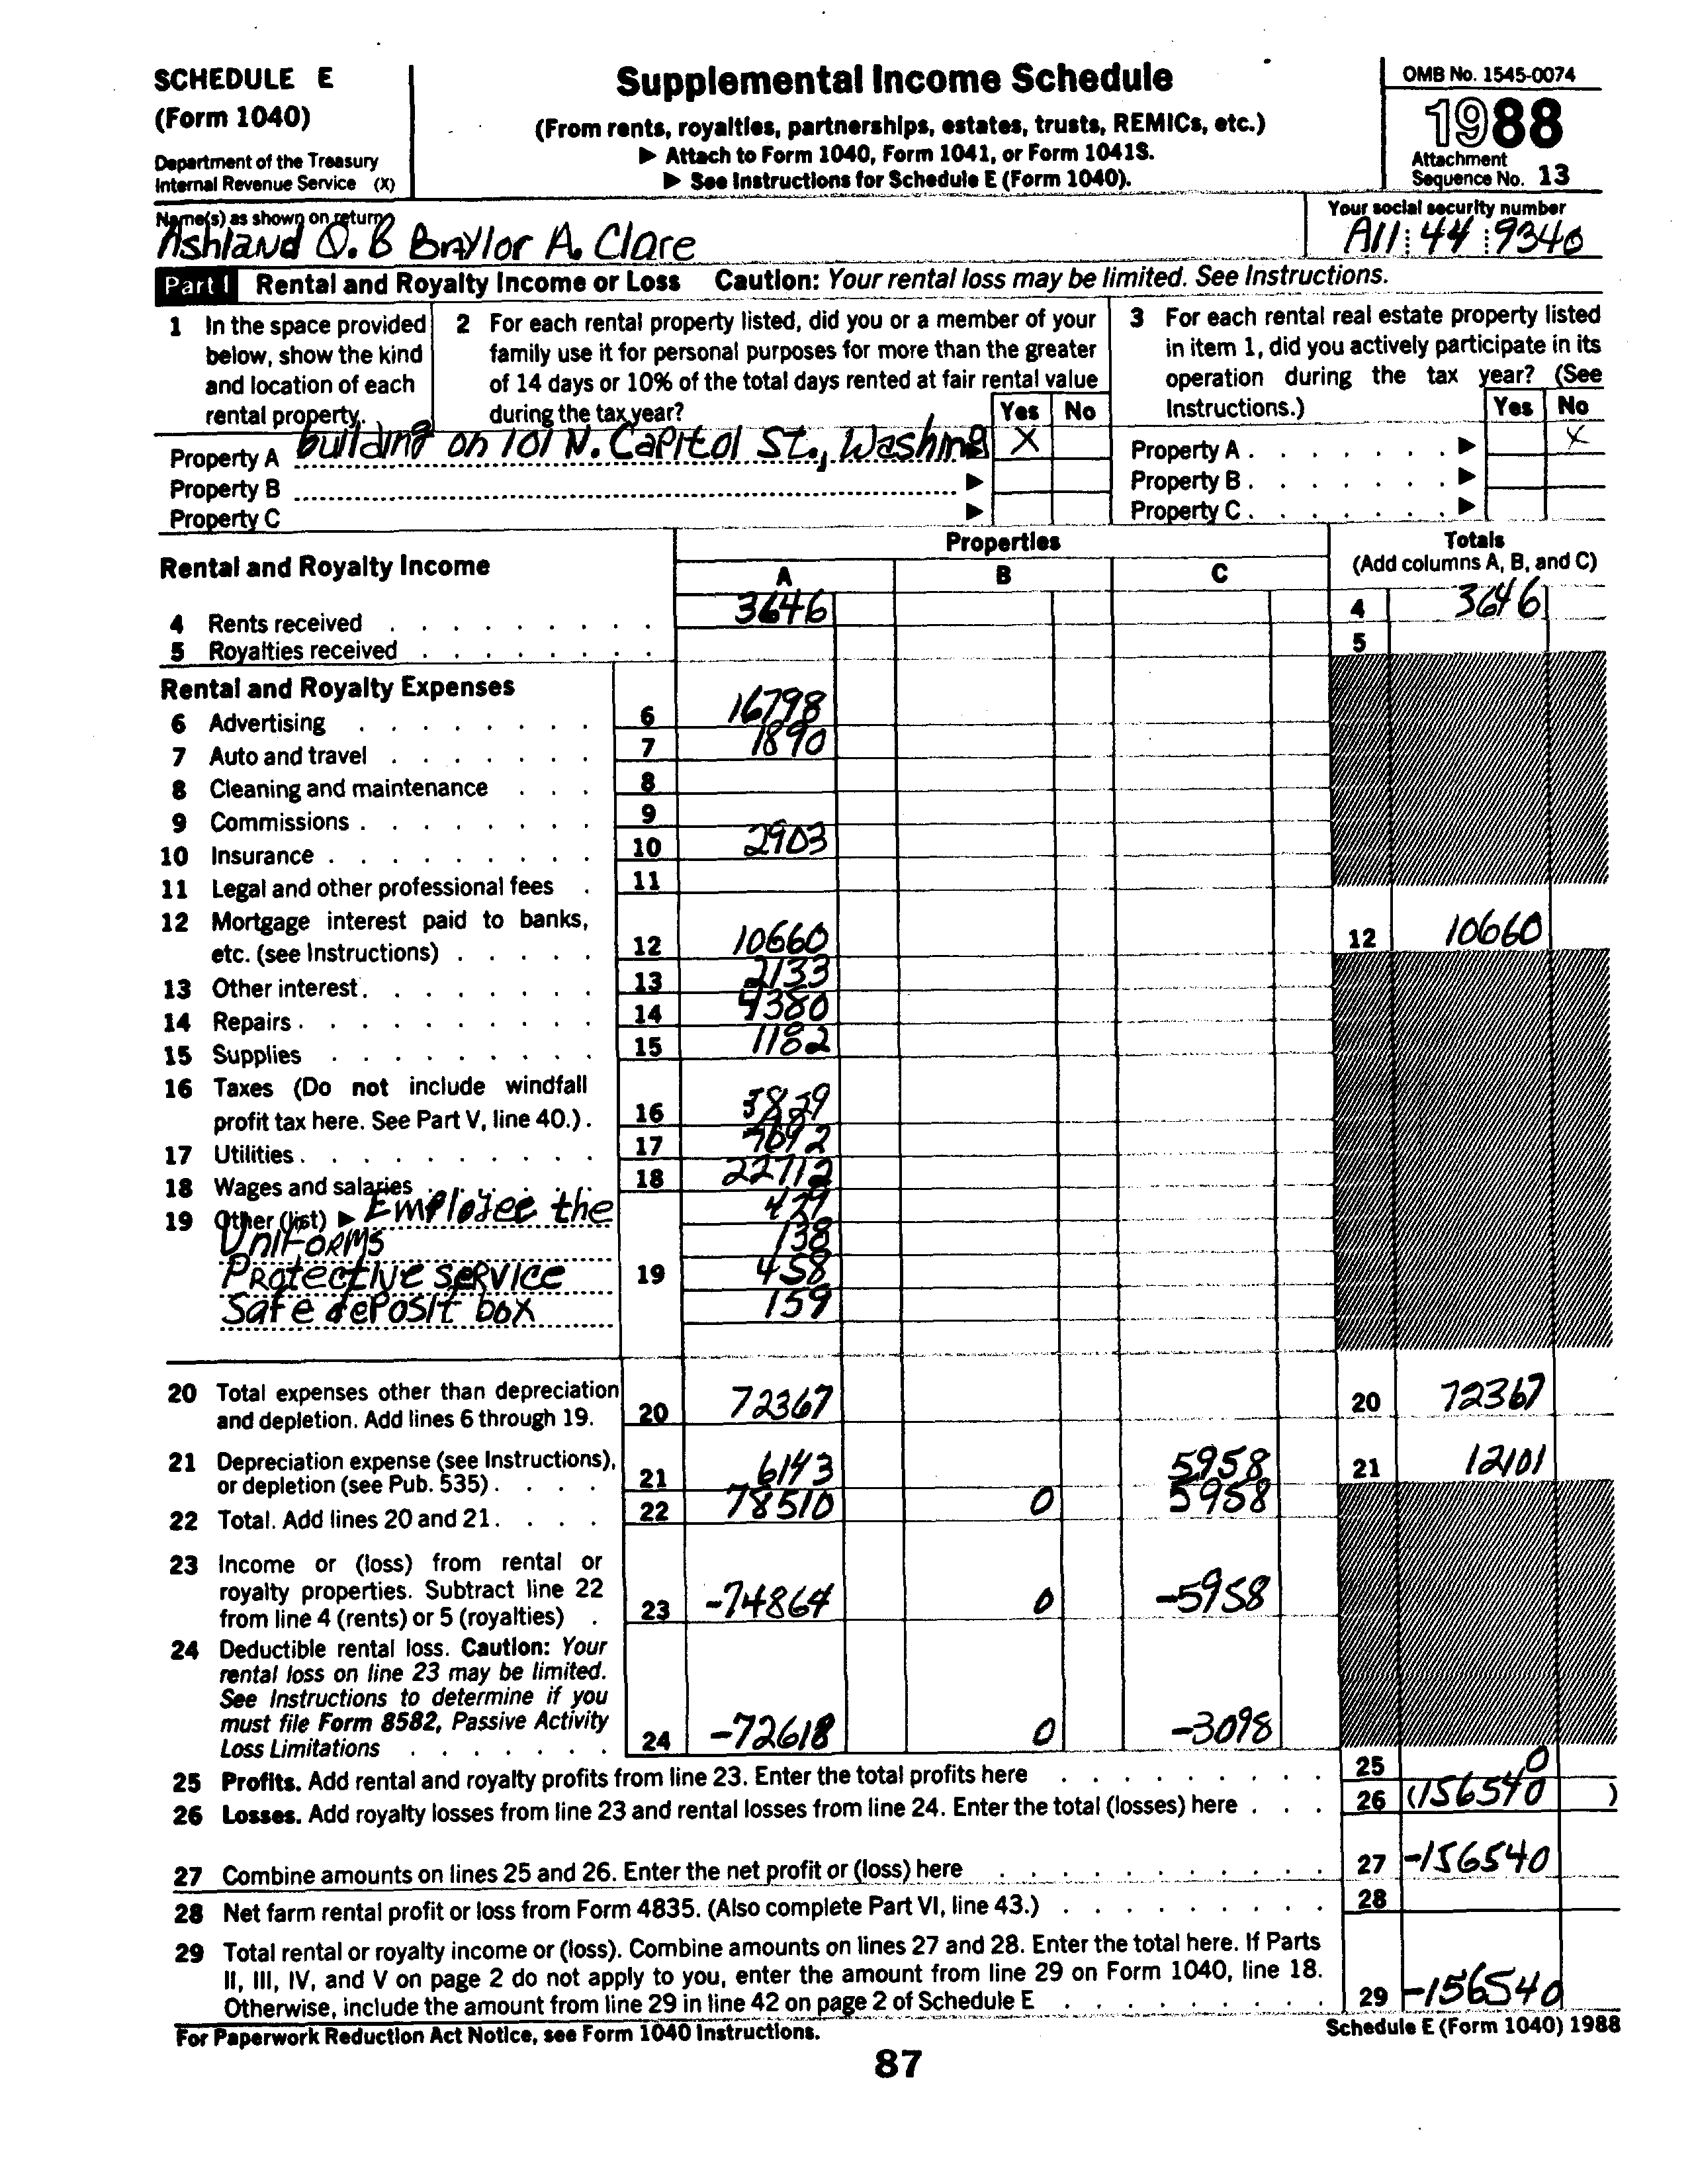 SCHEDULE E
(Form 1040)
Department of the Treasury
Internal Revenue Service (X)
Supplemental Income Schedule
(From rents, royalties, partnerships, estates, trusts, REMICs, etc.)
▶ Attach to Form 1040, Form 1041, or Form 1041S.
▶ See Instructions for Schedule E (Form 1040).
OMB No. 1545-0074
1988
Attachment
Sequence No. 13
Name(s) as shown on return
Ashland Q. B Baylor A. Clare
Your social security number
A11 44 9340
Part I Rental and Royalty Income or Loss Caution: Your rental loss may be limited. See Instructions.
1 In the space provided
below, show the kind
and location of each
rental property.
2 For each rental property listed, did you or a member of your
family use it for personal purposes for more than the greater
of 14 days or 10% of the total days rented at fair rental value
during the tax year?
Yes No
3 For each rental real estate property listed
in item 1, did you actively participate in its
operation during the tax year? (See
Instructions.)
Yes No
Property A building on 101 N. Capitol St., Washing X
Property B ▶
Property C ▶
Property A . . . . . . . ▶ X
Property B . . . . . . . ▶
Property C . . . . . . . ▶
Rental and Royalty Income
Properties
A B C
Totals
(Add columns A, B, and C)
4 Rents received 3646 4 3646
5 Royalties received 5
Rental and Royalty Expenses
6 Advertising 6 16798
7 Auto and travel 7 1890
8 Cleaning and maintenance 8
9 Commissions 9
10 Insurance 10 2903
11 Legal and other professional fees 11
12 Mortgage interest paid to banks,
etc. (see Instructions) 12 10660 12 10660
13 Other interest 13 2133
14 Repairs 14 4380
15 Supplies 15 1182
16 Taxes (Do not include windfall
profit tax here. See Part V, line 40.) 16 3829
17 Utilities 17 7692
18 Wages and salaries 18 22712
19 Other (list) ▶ Employee the 429
Uniforms 138
Protective service 19 458
Safe deposit box 159
20 Total expenses other than depreciation
and depletion. Add lines 6 through 19. 20 72367 20 72367
21 Depreciation expense (see Instructions),
or depletion (see Pub. 535) 21 6143 5958 21 12101
22 Total. Add lines 20 and 21 22 78510 0 5958
23 Income or (loss) from rental or
royalty properties. Subtract line 22
from line 4 (rents) or 5 (royalties) 23 -74864 0 -5958
24 Deductible rental loss. Caution: Your
rental loss on line 23 may be limited.
See Instructions to determine if you
must file Form 8582, Passive Activity
Loss Limitations 24 -72618 0 -3098
25 Profits. Add rental and royalty profits from line 23. Enter the total profits here 25 0
26 Losses. Add royalty losses from line 23 and rental losses from line 24. Enter the total (losses) here 26 (156540 )
27 Combine amounts on lines 25 and 26. Enter the net profit or (loss) here 27 -156540
28 Net farm rental profit or loss from Form 4835. (Also complete Part VI, line 43.) 28
29 Total rental or royalty income or (loss). Combine amounts on lines 27 and 28. Enter the total here. If Parts
II, III, IV, and V on page 2 do not apply to you, enter the amount from line 29 on Form 1040, line 18.
Otherwise, include the amount from line 29 in line 42 on page 2 of Schedule E 29 -156540
For Paperwork Reduction Act Notice, see Form 1040 Instructions.
Schedule E (Form 1040) 1988
87